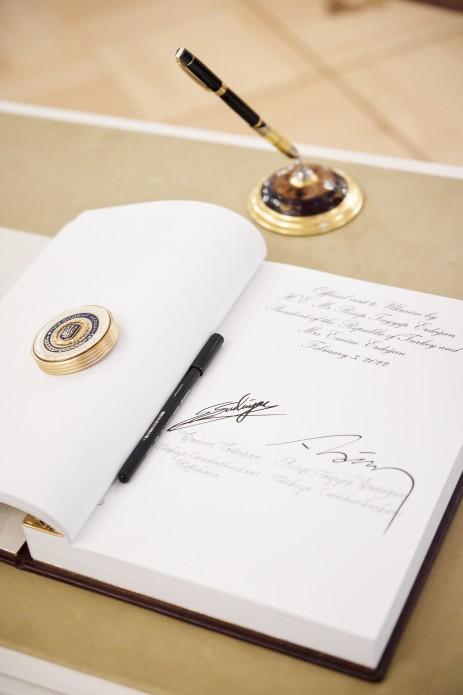 Official visit to Ukraine by
H. E. Mr. Recep Tayyip Erdoğan
President of the Republic of Turkey and
Mrs. Emine Erdoğan
February 3, 2022
Emine Erdoğan
Recep Tayyip Erdoğan
Türkiye Cumhurbaşkanı
Türkiye Cumhurbaşkanı